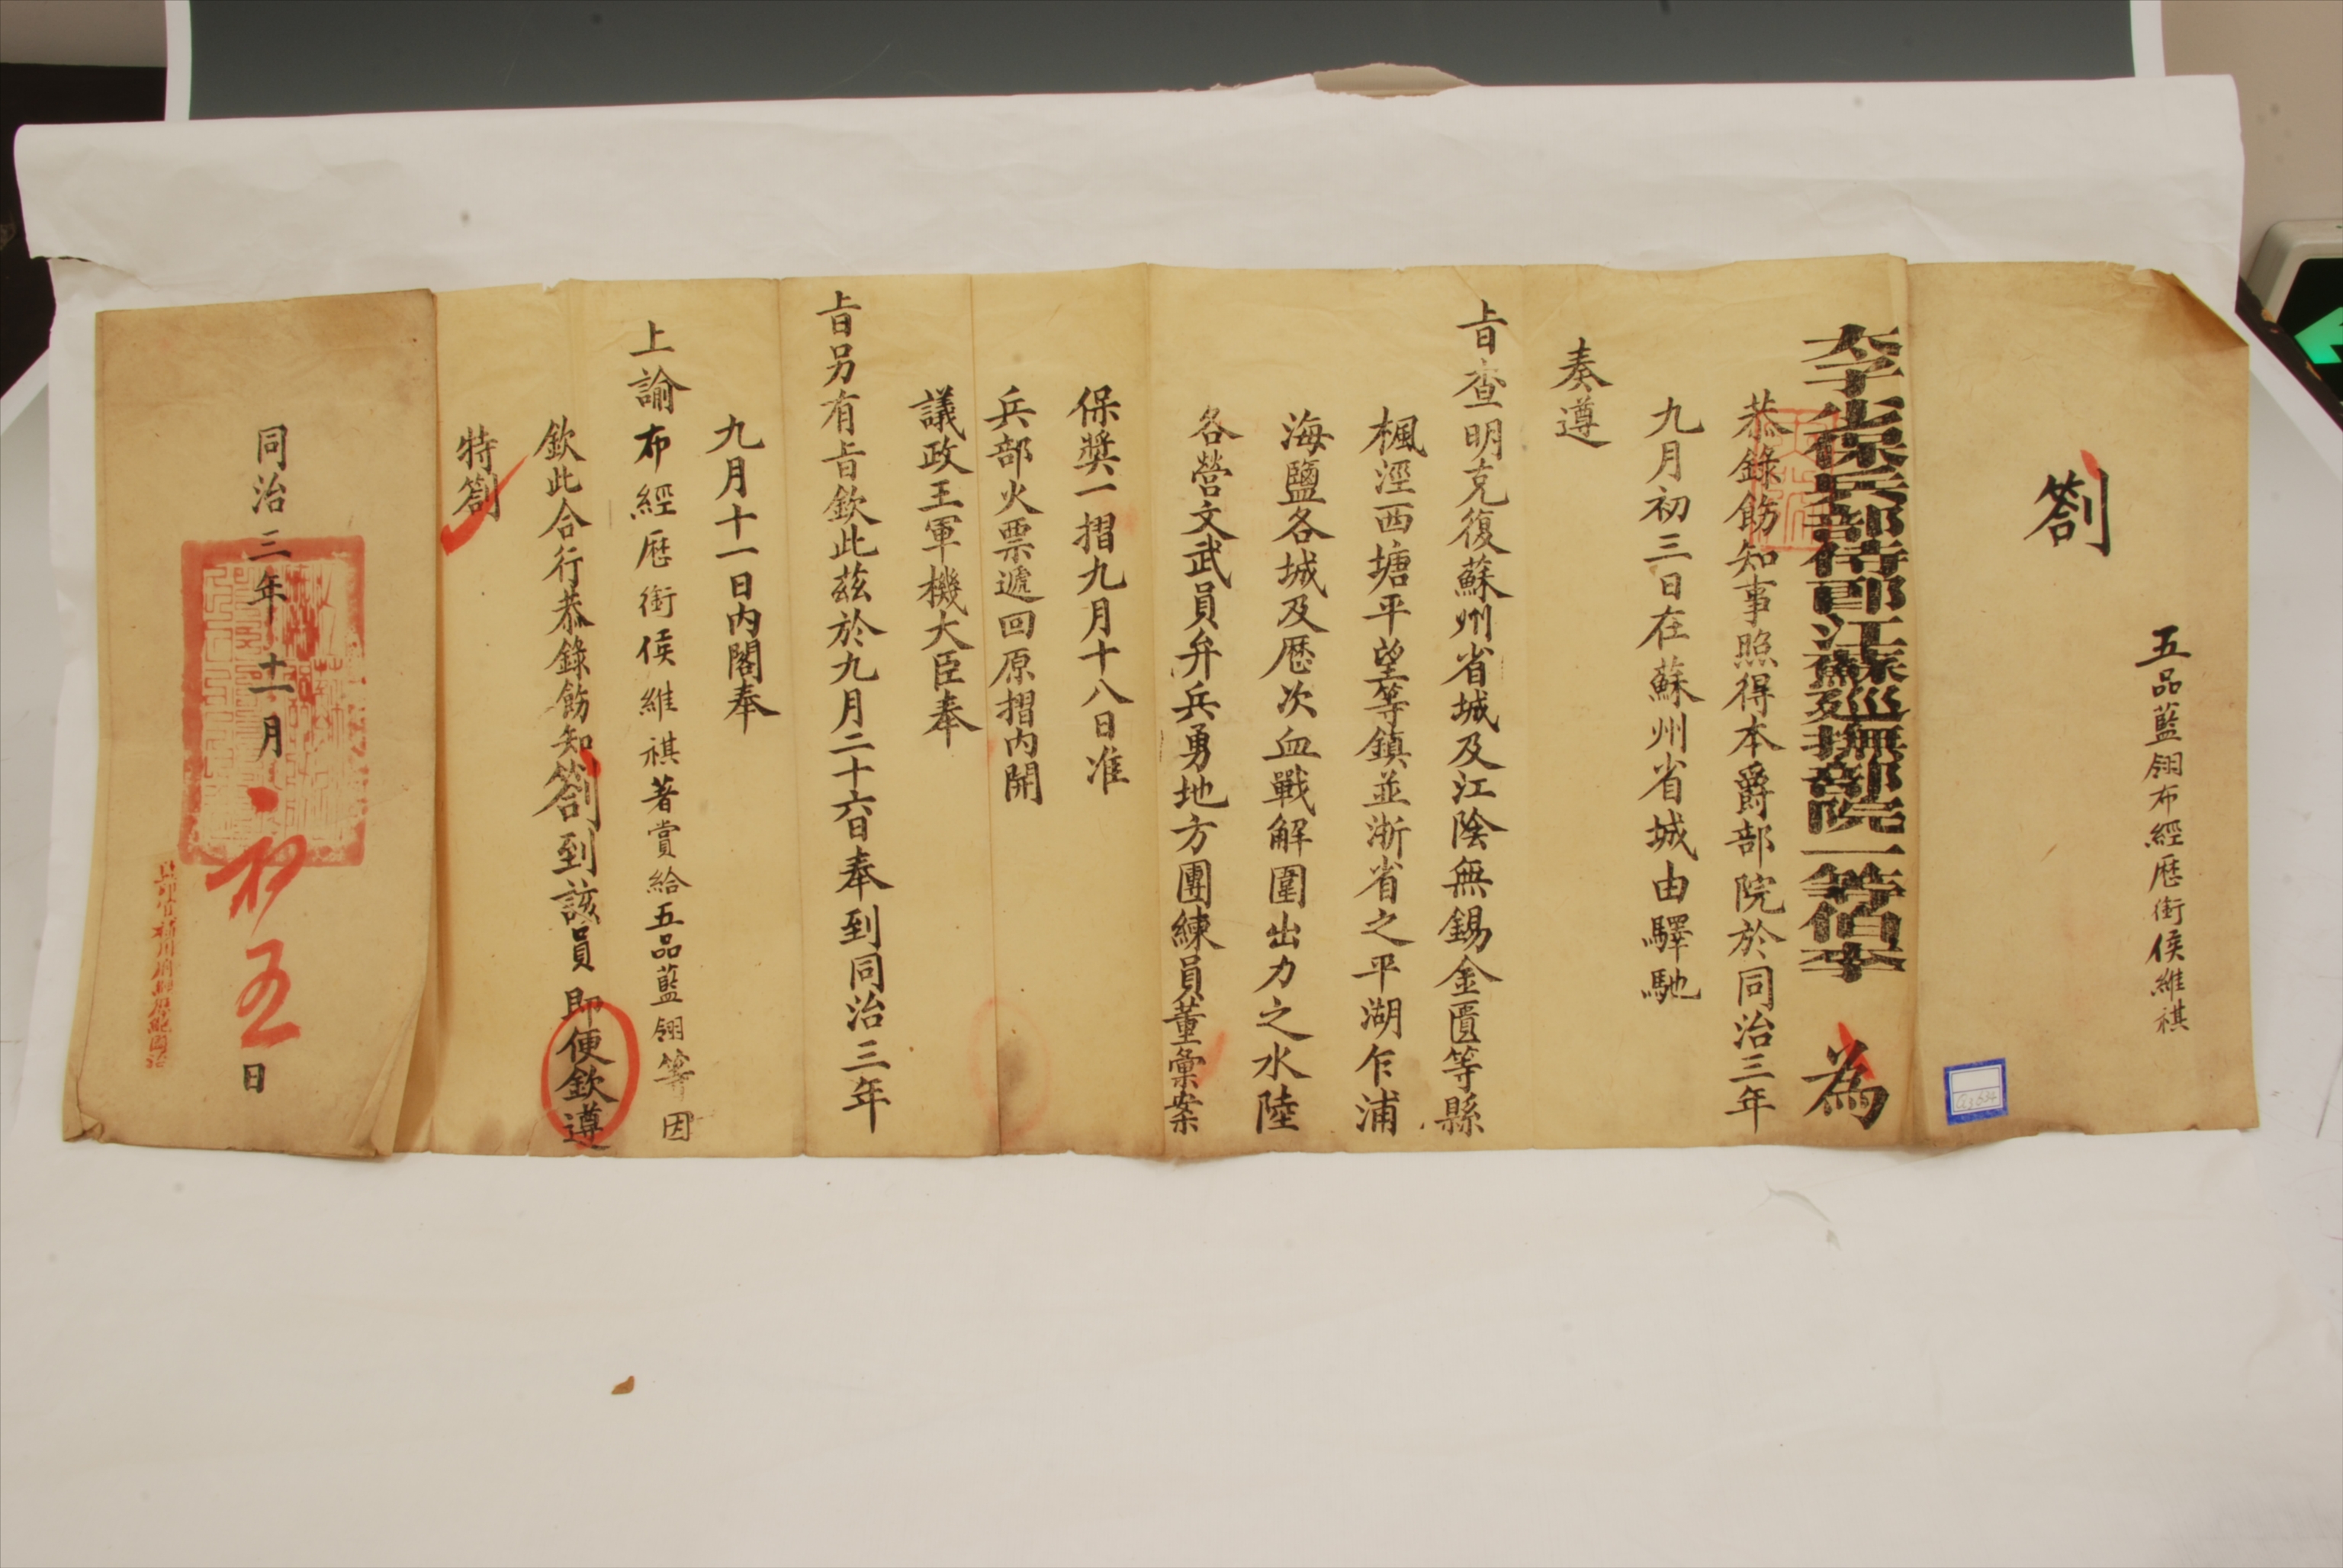 五品藍翎布經歷銜侯維祺
劄
李
太子少保兵部侍郎江蘇巡撫部院一等伯李 為
恭錄飭知事照得本爵部院於同治三年
九月初三日在蘇州省城由驛馳
奏遵
旨查明克復蘇州省城及江陰無錫金匱等縣
楓涇西塘平望等鎮並浙省之平湖乍浦
海鹽各城及歷次血戰解圍出力之水陸
各營文武員弁兵勇地方團練員董彙案
保獎一摺九月十八日准
兵部火票遞回原摺內開
議政王軍機大臣奉
旨另有旨欽此茲於九月二十六日奉到同治三年
九月十一日內閣奉
上諭布經歷銜侯維祺著賞給五品藍翎等因
欽此合行恭錄飭知劄到該員即便欽遵
特劄
同治三年十一月初五日